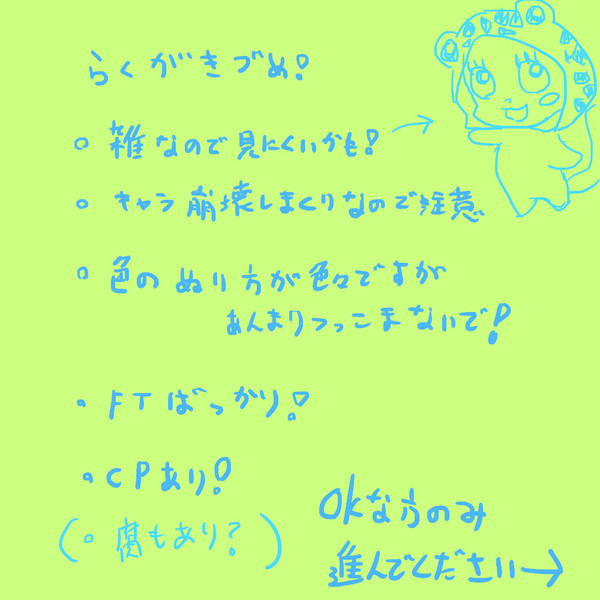 らくがきづめ!
○ 雑なので見にくいかも!→
○ キャラ崩壊しまくりなので注意
○ 色のぬり方が色々ですが
あんまりつっこまないで!
・FTばっかり!
・CPあり!
(○ 腐もあり?)
OKな方のみ
進んでください→